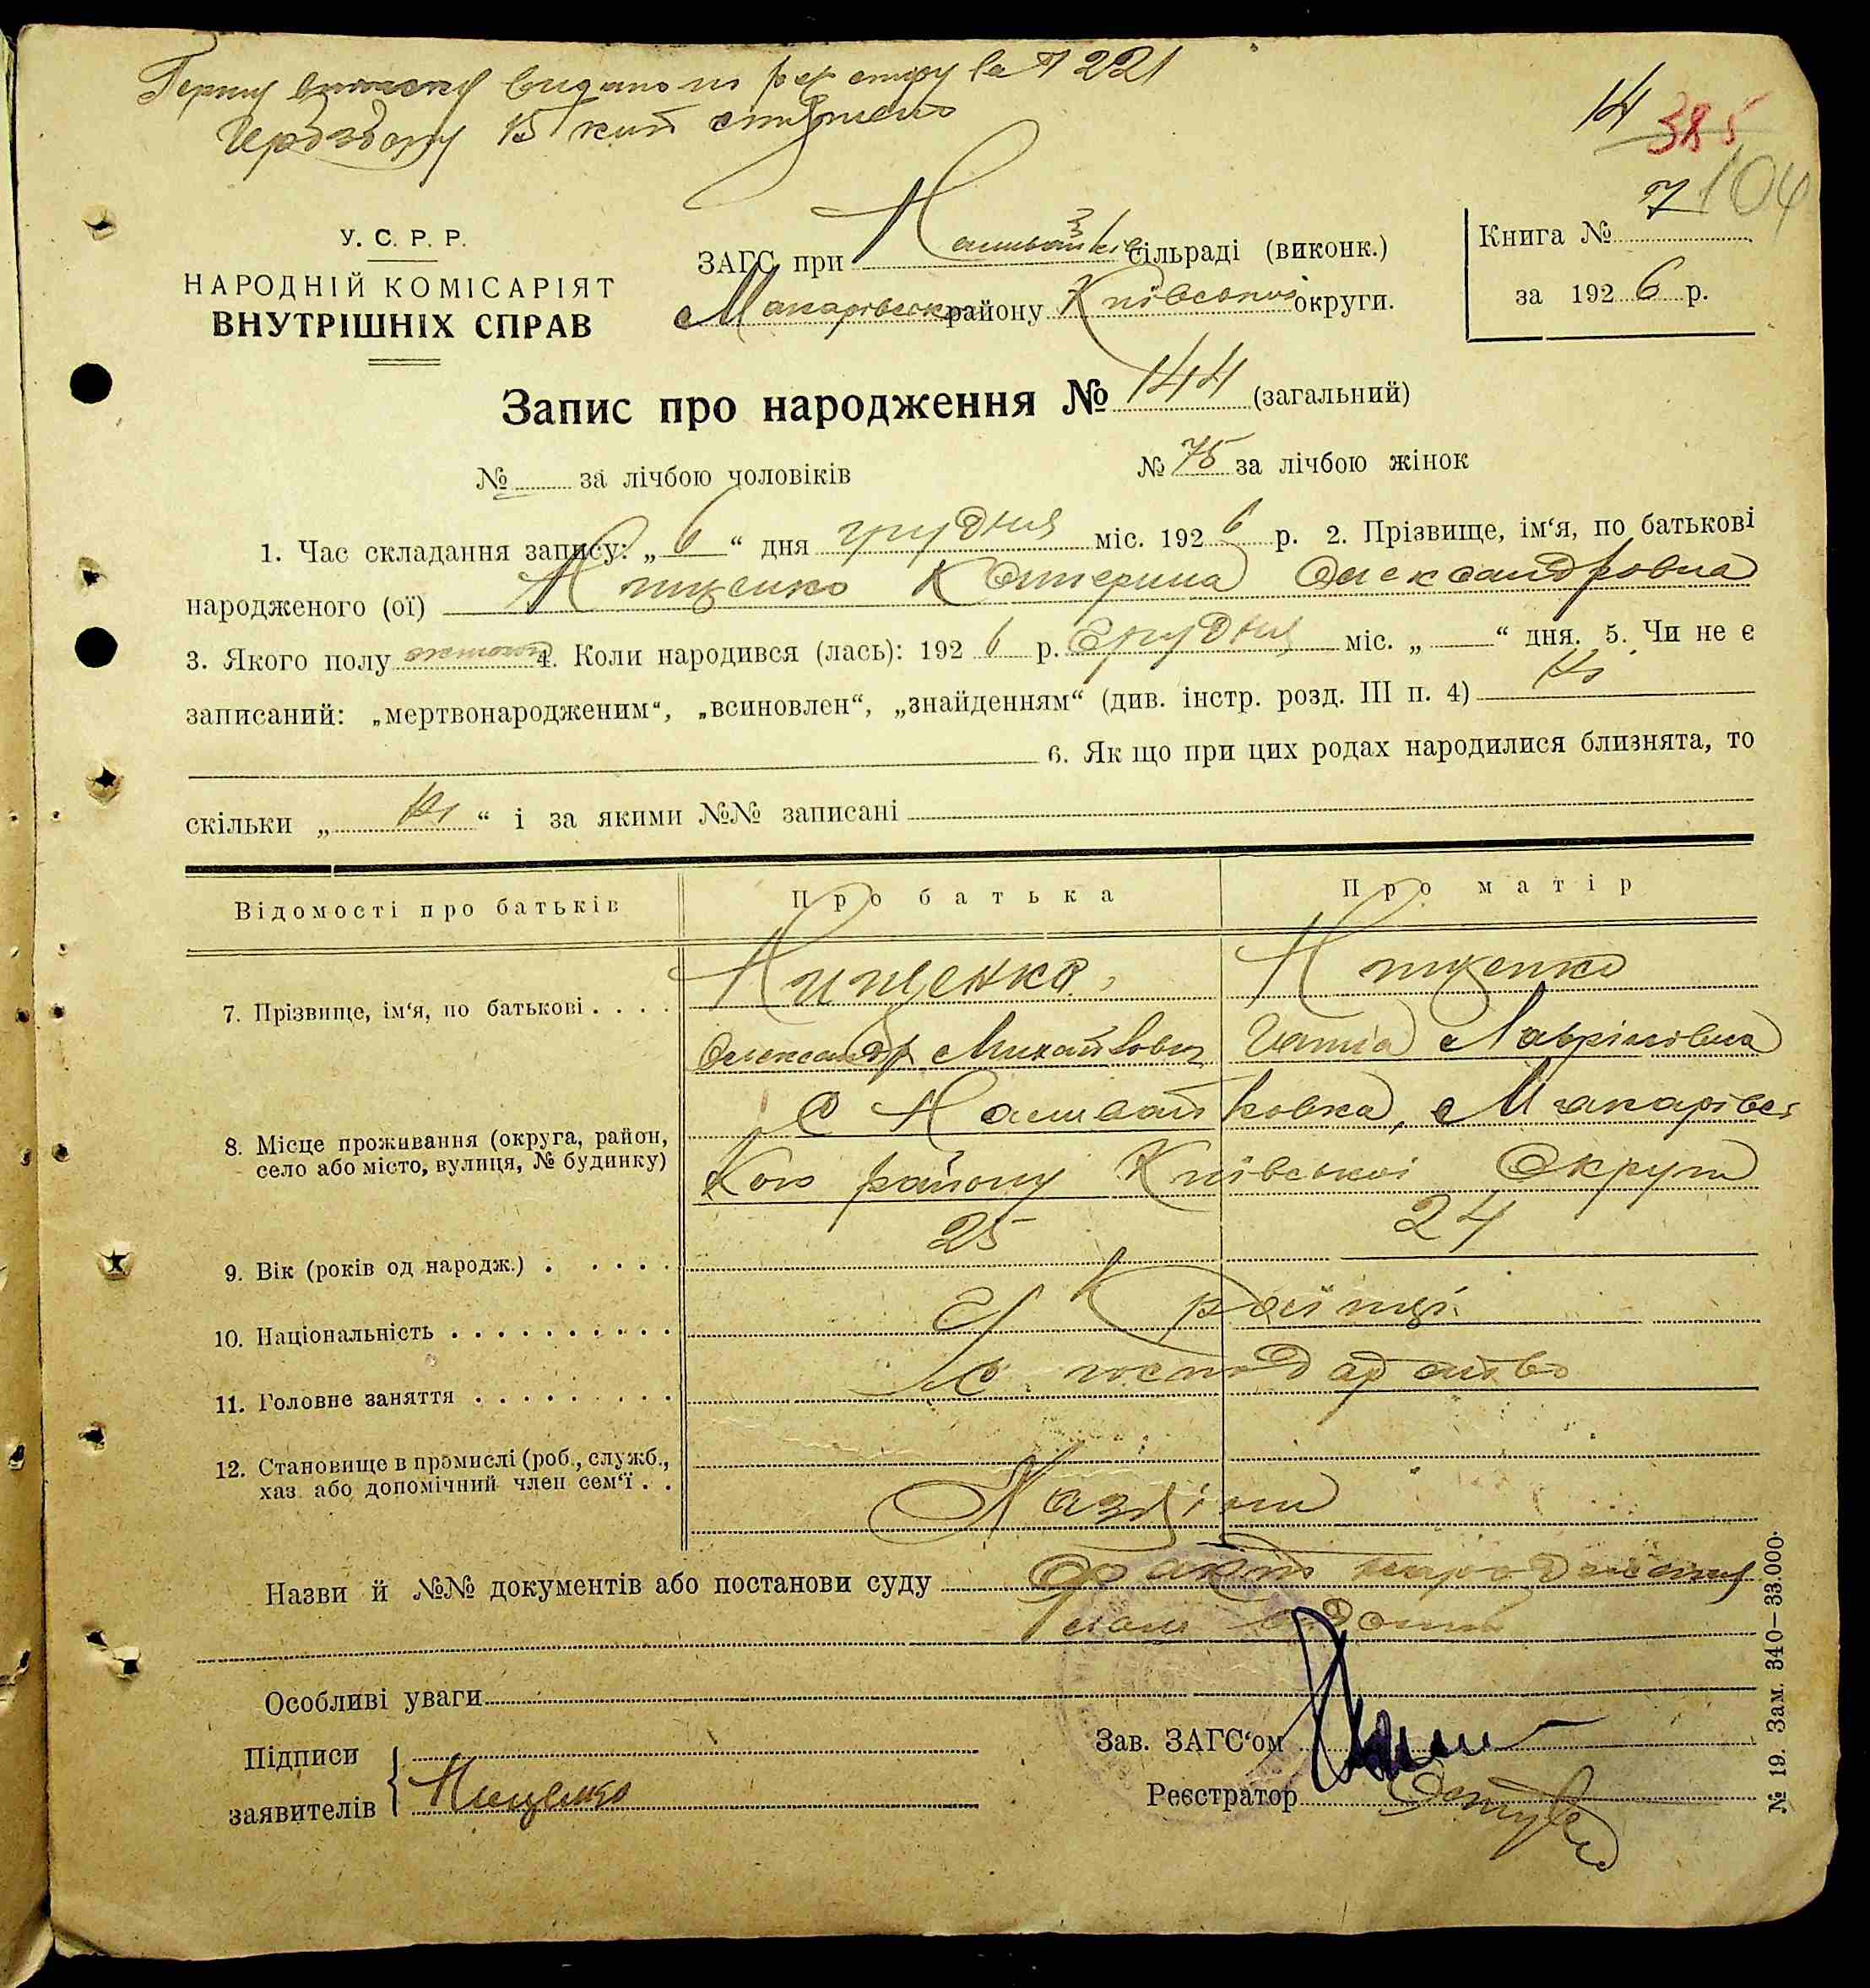 видано по реєстру за № 221
15 коп
14
385
104
У. С. Р. Р.
НАРОДНІЙ КОМІСАРІЯТ
ВНУТРІШНІХ СПРАВ
ЗАГС при Наливайків сільраді (виконк.)
Макарівськ району Київської округи.
Книга № 7
за 1926 р.
Запис про народження № 144 (загальний)
№ за лічбою чоловіків
№ 75 за лічбою жінок
1. Час складання запису: „6“ дня грудня міс. 1926 р. 2. Прізвище, ім‘я, по батькові
народженого (ої) Нищенко Катерина Олександровна
3. Якого полу жіночої 4. Коли народився (лась): 1926 р. Грудня міс. „ — “ дня. 5. Чи не є
записаний: „мертвонародженим“, „всиновлен“, „знайденням“ (див. інстр. розд. III п. 4) Ні
6. Як що при цих родах народилися близнята, то
скільки „ Ні “ і за якими №№ записані
Відомості про батьків
Про батька
Про матір
7. Прізвище, ім‘я, по батькові . . . .
Нищенко
Нищенко
Олександр Михайлович
Ганна Лаврінівна
8. Місце проживання (округа, район,
село або місто, вулиця, № будинку)
С Наливайковка, Макарівсь
кого району Київської Округи
9. Вік (років од народж.) . . . . .
25
24
10. Національність . . . . . . . . . .
Українці
11. Головне заняття . . . . . . . . .
С. господарство
12. Становище в промислі (роб., служб.,
хаз. або допомічний член сем‘ї . .
Хазяїни
Назви й №№ документів або постанови суду
Факт народження
Особливі уваги
Підписи
заявителів
Нищенко
Зав. ЗАГС‘ом
Реєстратор
№ 19. Зам. 340—33.000.